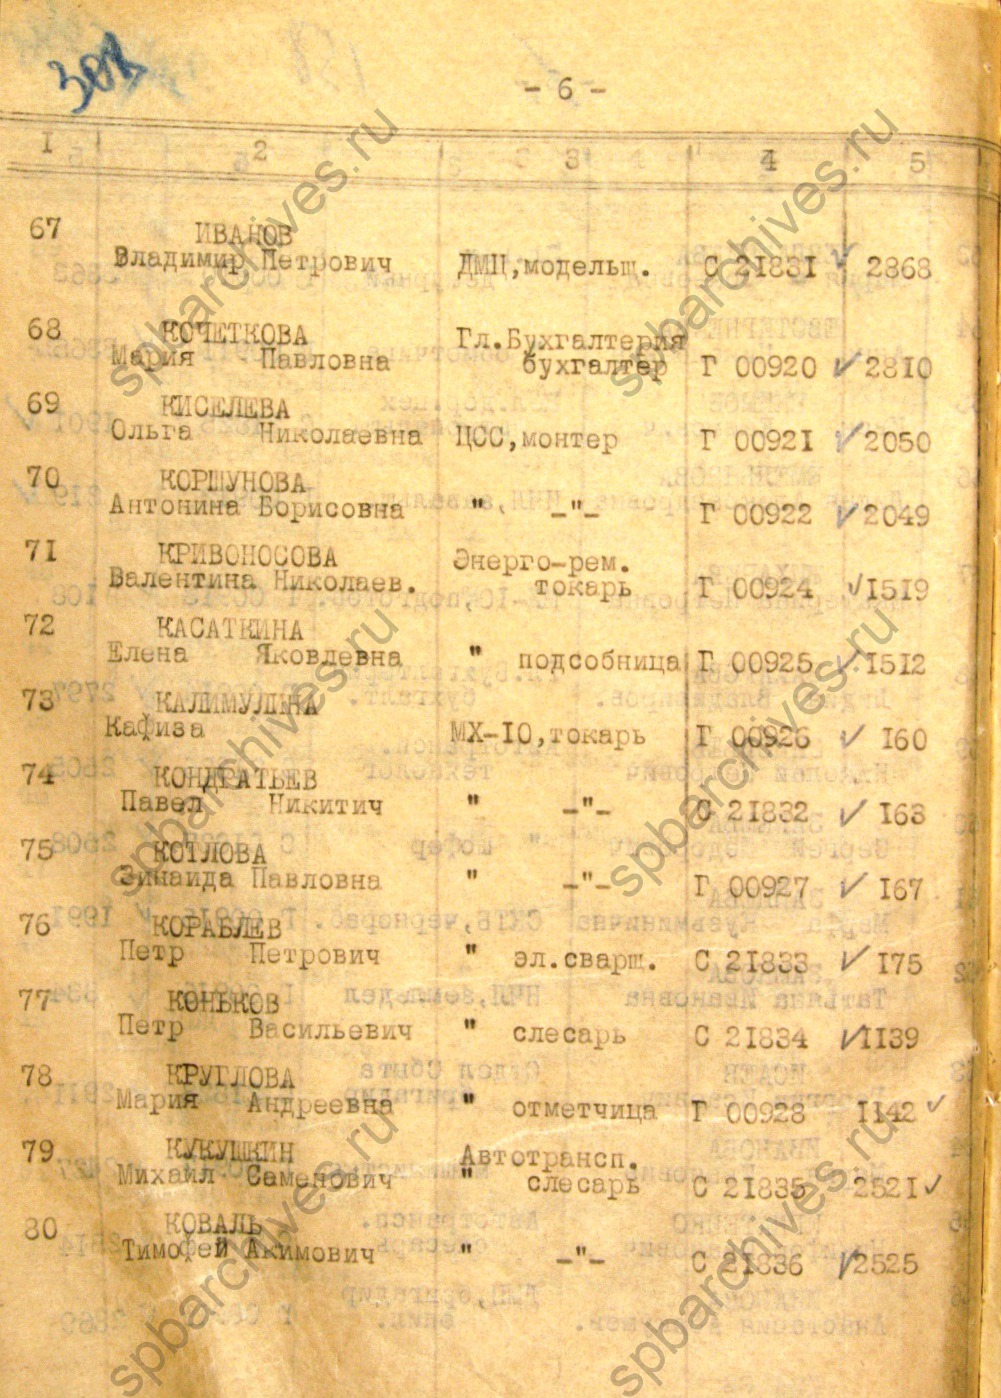 308
- 6 -
1 2 3 4 5
67 ИВАНОВ
Владимир Петрович ДМЦ,модельщ. С 21831 ✓ 2868
68 КОЧЕТКОВА Гл.Бухгалтерия
Мария Павловна бухгалтер Г 00920 ✓ 2810
69 КИСЕЛЕВА
Ольга Николаевна ЦСС,монтер Г 00921 ✓ 2050
70 КОРШУНОВА
Антонина Борисовна " -"- Г 00922 ✓ 2049
71 КРИВОНОСОВА Энерго-рем.
Валентина Николаев. токарь Г 00924 ✓ 1519
72 КАСАТКИНА
Елена Яковлевна " подсобница Г 00925 ✓ 1512
73 КАЛИМУЛИНА
Кафиза МХ-10,токарь Г 00926 ✓ 160
74 КОНДРАТЬЕВ
Павел Никитич " -"- С 21832 ✓ 163
75 КОТЛОВА
Зинаида Павловна " -"- Г 00927 ✓ 167
76 КОРАБЛЕВ
Петр Петрович " эл.сварщ. С 21833 ✓ 175
77 КОНЬКОВ
Петр Васильевич " слесарь С 21834 ✓ 1139
78 КРУГЛОВА
Мария Андреевна " отметчица Г 00928 1142 ✓
79 КУКУШКИН Автотрансп.
Михаил Саменович " слесарь С 21835 2521 ✓
80 КОВАЛЬ
Тимофей Акимович " -"- С 21836 ✓ 2525
spbarchives.ru
spbarchives.ru
spbarchives.ru
spbarchives.ru
spbarchives.ru
spbarchives.ru